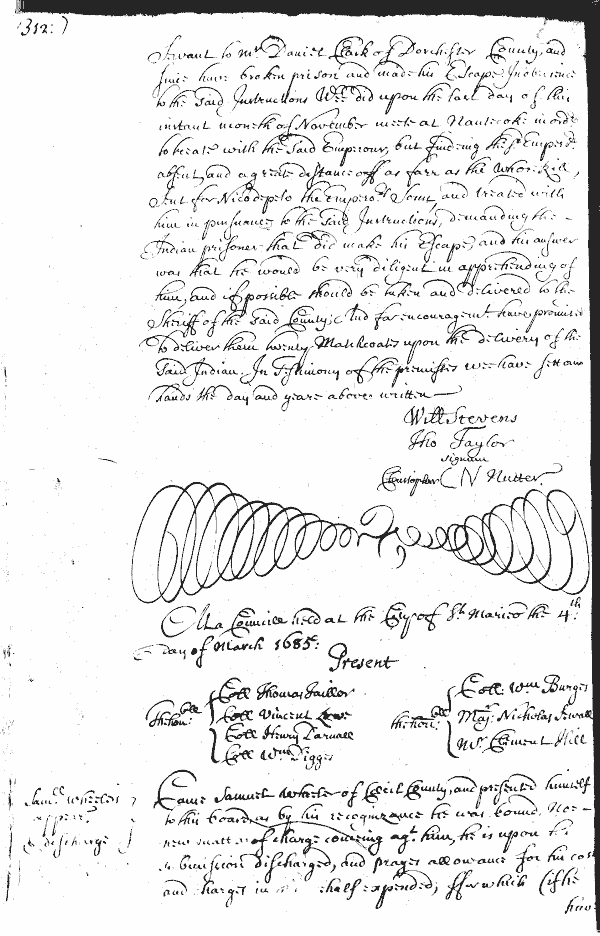 312:)
Servant to mr Daniel Clark of Dorchester County, and
since have broken prison and made his Escape, In obedience
to the said Instructions Wee did upon the last day of this
instant moneth of November meete at Nantecoke in order
to treate with the said Emperour, but finding the sd Emperor
absent, and a greate distance off as farr as the Whorekill,
sent for the Emperors Sonn, and treated with
him in pursuance to the said Instructions, demanding the
Indian prisoner that did make his Escape, and his answer
was that he would be very diligent in apprehending of
him, and if possible should be taken and delivered to the
Sheriff of the said County; And for encouragemt have promised
to deliver them twenty Matchcoates upon the delivery of the
said Indian. In Testimony of the premises wee have sett our
hands the day and yeare above written
Will Stevens
Jno Taylor
signum
Christopher N Nutter
At a Councill held at the Citty of St Maries the 4th
day of March 1685:
Present
The honble Coll Thomas Tailler
Coll Vincent Lowe
Coll Henry Darnall
Coll Wm Digges
the honble Coll. Wm Burges
Majr Nicholas Sewall
Mr Clement Hill
Saml Wheelers
appear
& discharge
Came Samuel Wheeler of Cecil County, and presented himself
to this board as by his recognizance he was bound. Noe
new matter of charge comeing agt him, he is upon his
submission discharged, and prayes allowance for his cost
and charges in behalf expended, ffor which (if he
have